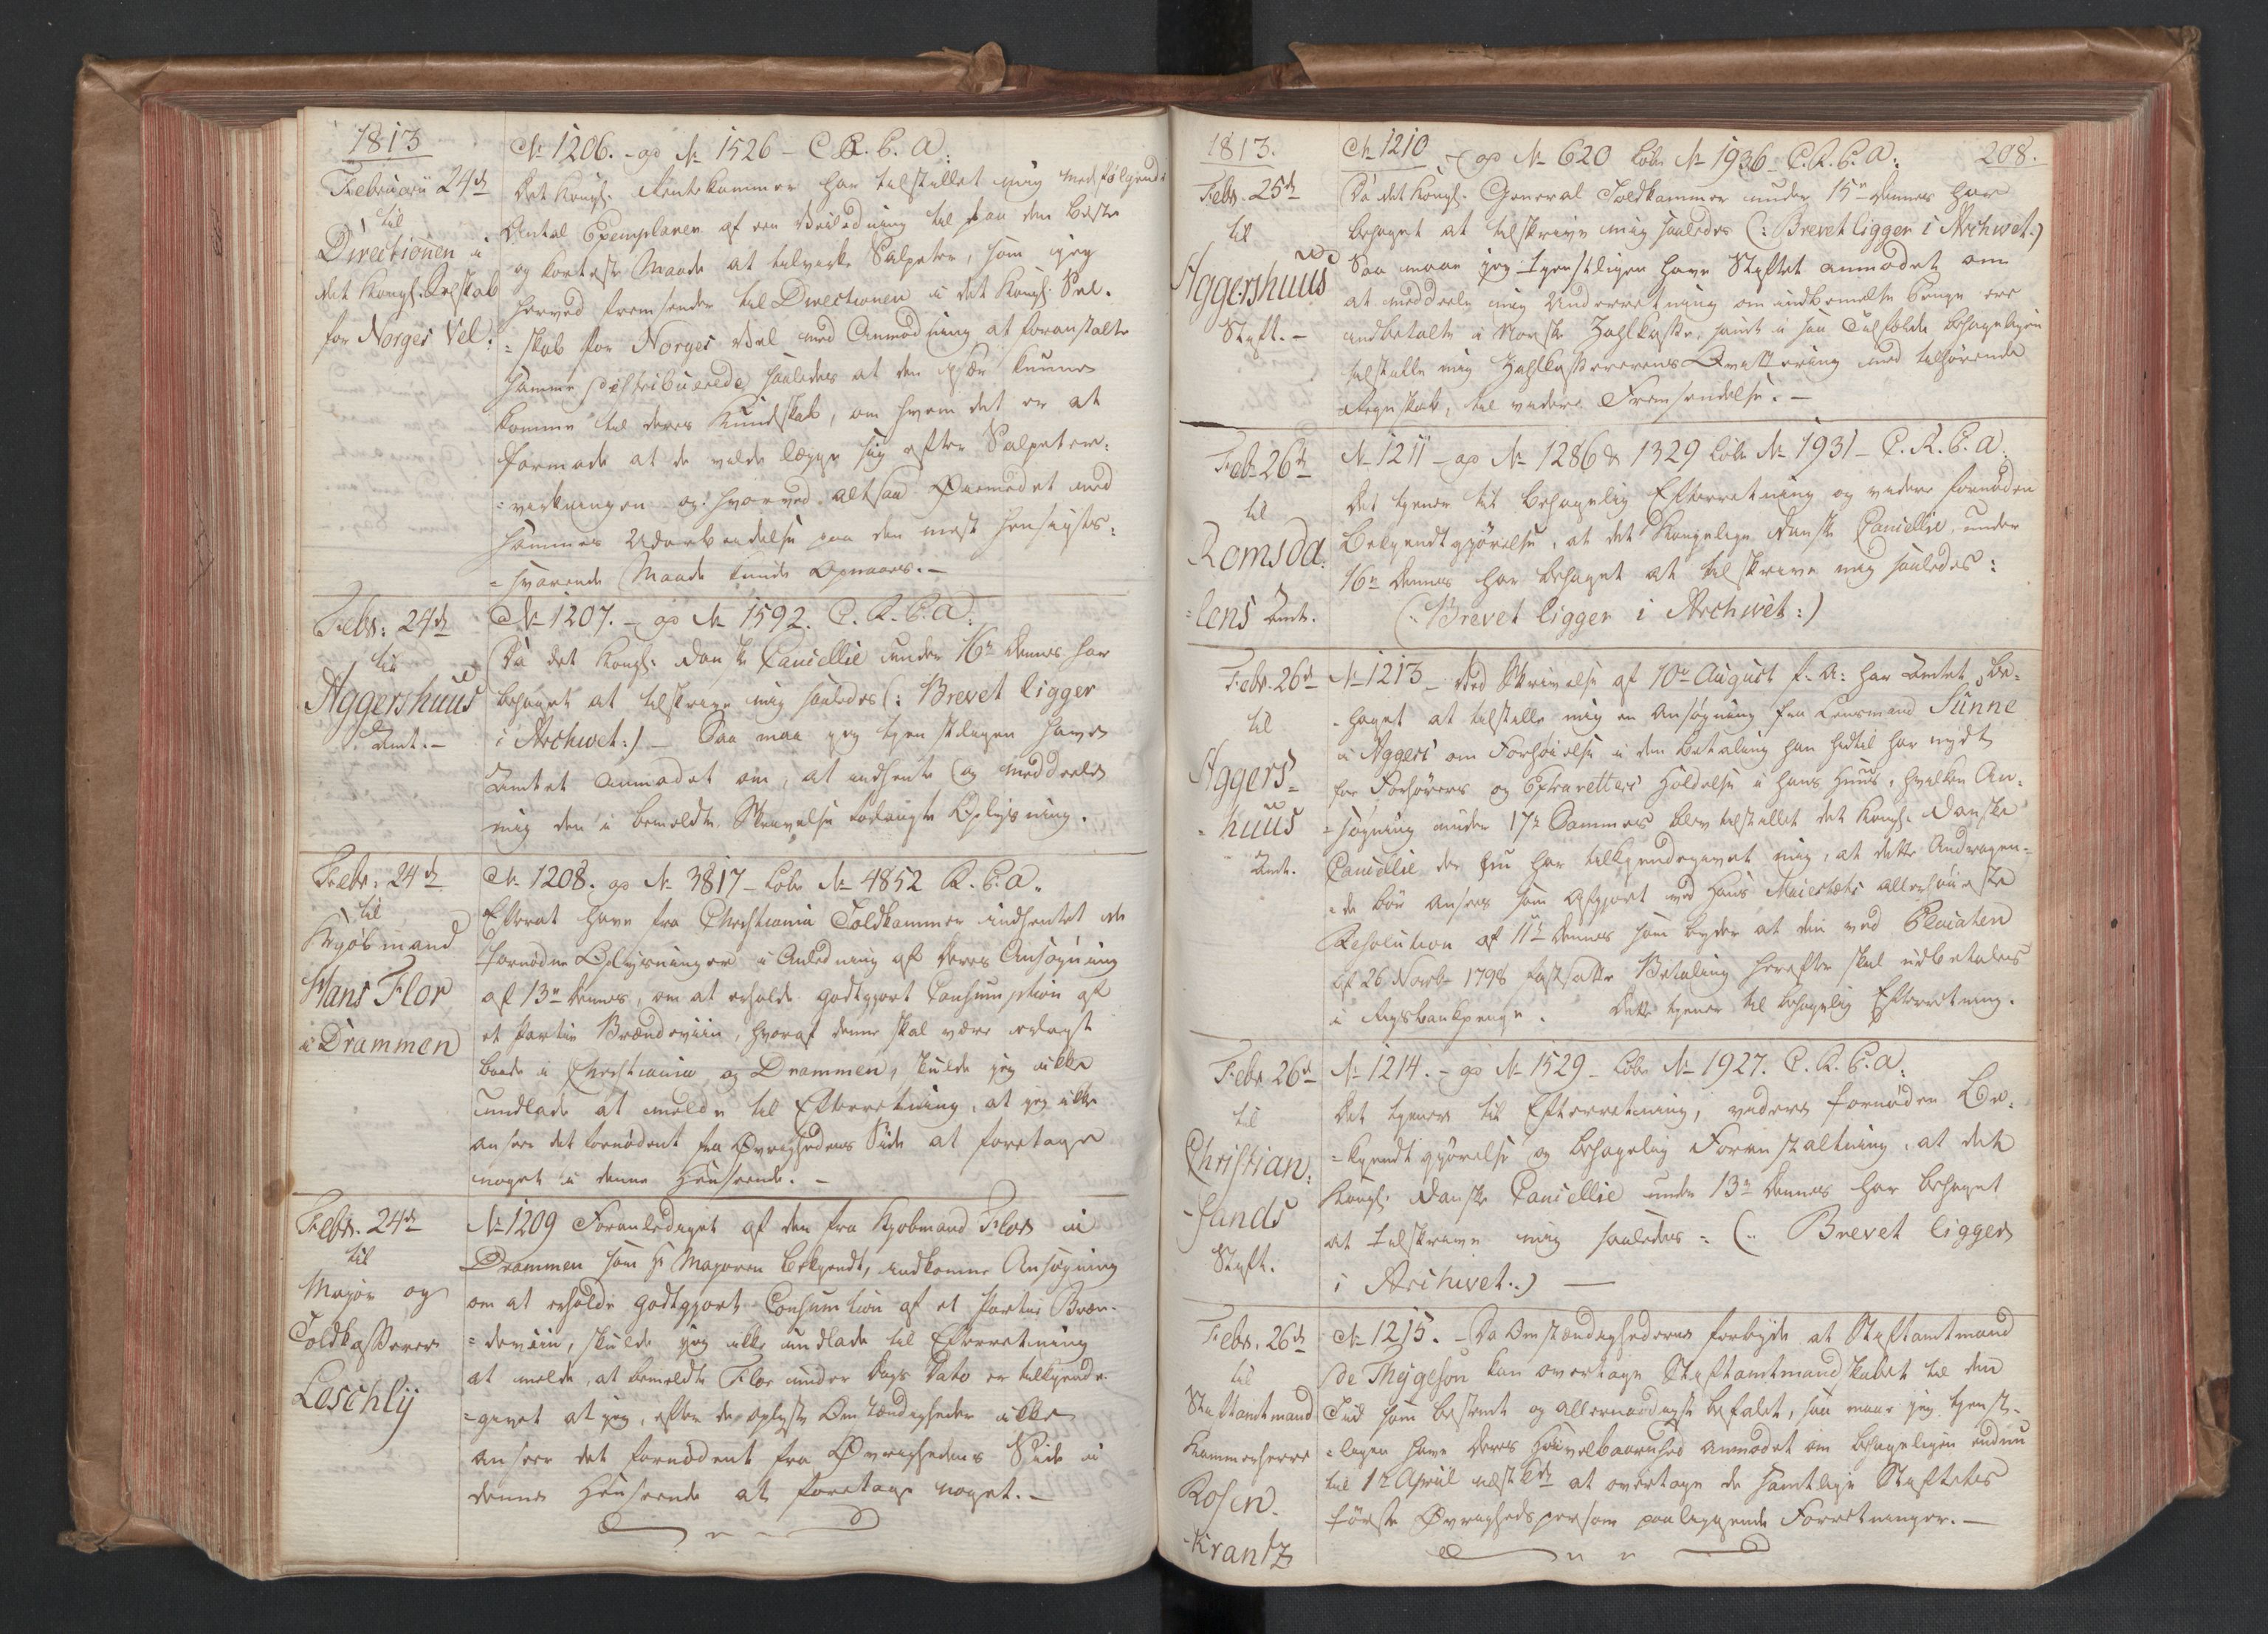 1813
Februarii 24de
til
Directionen i
det Kongl. Selskab
for Norges Vel.
No 1206. - ad No 1526 - C. R. C. A.
Det Kongl. Rentekammer har tilstillet mig medfølgende
Antal Exemplarer af en Veiledning til paa den beste
og korteste Maade at tilvirke Salpeter, som jeg
herved fremsender til Directionen i det Kongl. Sel-
=skab for Norges Vel med Anmodning at foranstalte
samme distribuerede saaledes at den især kunne
komme til deres Kundskab, om hvem det er at
formode at de vilde lægge sig efter Salpeter=
=virkningen og hvorved altsaa Øiemedet med
sammes Udarbeidelse paa den mest hensigts=
=svarende Maade kunde opnaaes. -
Febr: 24de
til
Aggershuus
Amt. -
No 1207. - ad No 1592. C. R. C. A.
Da det Kongl. danske Cancellie under 16de dennes har
behaget at tilskrive mig saaledes (: Brevet ligger
i Archivet :) - Saa maa jeg tjenstligen have
Amtet anmodet om, at indhente og meddeele
mig den i bemeldte Skrivelse forlangte Oplysning.
Febr. 24de
til
Kjøbmand
Hans Flor
i Drammen
No 1208. ad No 3817 - Lobr No 4852 R. C. A.
Efterat have fra Christiania Toldkammer indhentet de
fornødne Oplysninger i Anledning af Deres Ansøgning
af 13de dennes, om at erholde godtgjort Consumption af
et Partie Brændeviin, hvoraf denne skal være erlagt
baade i Christiania og Drammen, skulde jeg ikke
undlade at melde til Efterretning, at jeg ikke
anseer det fornødent fra Øvrighedens Side at foretage
noget i denne Henseende. -
Febr. 24de
til
Major og
Toldkasserer
Leschlÿ
No 1209 Foranlediget af den fra Kjøbmand Flor i
Drammen som Hr Majoren bekjendt, indkomne Ansøgning
om at erholde godtgjort Consumtion af et Partie Bræn-
=deviin, skulde jeg ikke undlade til Efterretning
at melde, at bemeldte Flor under Dags Dato er tilkjende-
=givet at jeg, efter de oplyste Omstændigheder ikke
anseer det fornødent fra Øvrighedens Side i
denne Henseende at foretage noget. -
1813.
208.
Febr. 25de
til
Aggershuus
Stift. -
No 1210 - ad No 620 Lobr No 1936 C. R. C. A.
Da det Kongl. General Toldkammer under 15de dennes har
behaget at tilskrive mig saaledes (: Brevet ligger i Archivet :)
Saa maae jeg tjenstligen have Stiftet anmodet om
at meddeele mig Underretning om indbemeldte Penge ere
indbetalte i Norske Zahlkasse, samt i saa Tilfælde behageligen
tilstille mig Zahlkassererens Qvittering med tilhørende
Regnskab, til videre Fremsendelse. -
Febr 26de
til
Romsda=
=lens Amt.
No 1211 - ad No 1286 & 1329 Lobr No 1931 - C. R. C. A.
Det tjener til behagelig Efterretning og videre fornøden
Bekjendtgjørelse, at det Kongelige danske Cancellie under
16de dennes har behaget at tilskrive mig saaledes:
(: Brevet ligger i Archivet :)
Febr. 26de
til
Aggers=
=huus
Amt.
No 1213 - Ved Skrivelse af 10de August f. A. har Amtet be=
=haget at tilstille mig en Ansøgning fra Lensmand Sunne
i Aggers om Forhøielse i den Betaling han hidtil har nydt
for Forhørers og Extraretters Holdelse i hans Huus, hvilken An=
=søgning under 17de Sammes blev tilstillet det Kongl. Danske
Cancellie der nu har tilkjendegivet mig, at dette Andragen=
=de bør ansees som afgjort ved Hans Majestæts allerhøieste
Resolution af 11te dennes som byder at den ved Placaten
af 26 Novbr 1798 fastsatte Betaling herefter skal udbetales
i Rigsbankpenge. Dette tjener til behagelig Efterretning.
Febr 26de
til
Christian=
=sands
Stift.
No 1214. - ad No 1529 - Lobr No 1927. C. R. C. A.
Det tjener til Efterretning, videre fornøden Be=
=kjendtgjørelse og behagelig Foranstaltning, at det
Kongl. Danske Cancellie under 13de dennes har behaget
at tilskrive mig saaledes = (: Brevet ligger
i Archivet :) -
Febr. 26de
til
Stiftamtmand
Kammerherre
Rosen=
=krantz
No 1215. - Da Omstændighederne forbyde at Stiftamtmand
de Thygeson kan overtage Stiftamtmandskabet til den
Tid som bestemt og allernaadigst befalet, saa maae jeg tjenst-
=ligen have Deres Høivelbaarenhed anmodet om behageligen endnu
til 1te April næstk. at overtage de samtlige Stiftets
første Øvrighedsperson paaliggende Forretninger. -